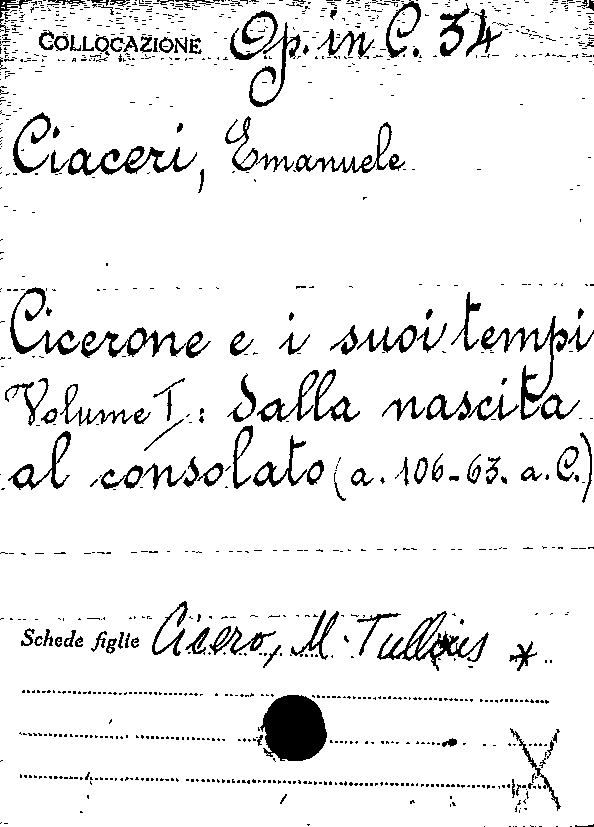 COLLOCAZIONE Op. in C. 34
Ciaceri, Emanuele
Cicerone e i suoi tempi
Volume I: Dalla nascita
al consolato (a. 106-63. a.C.)
Schede figlie Cicero, M. Tullius *